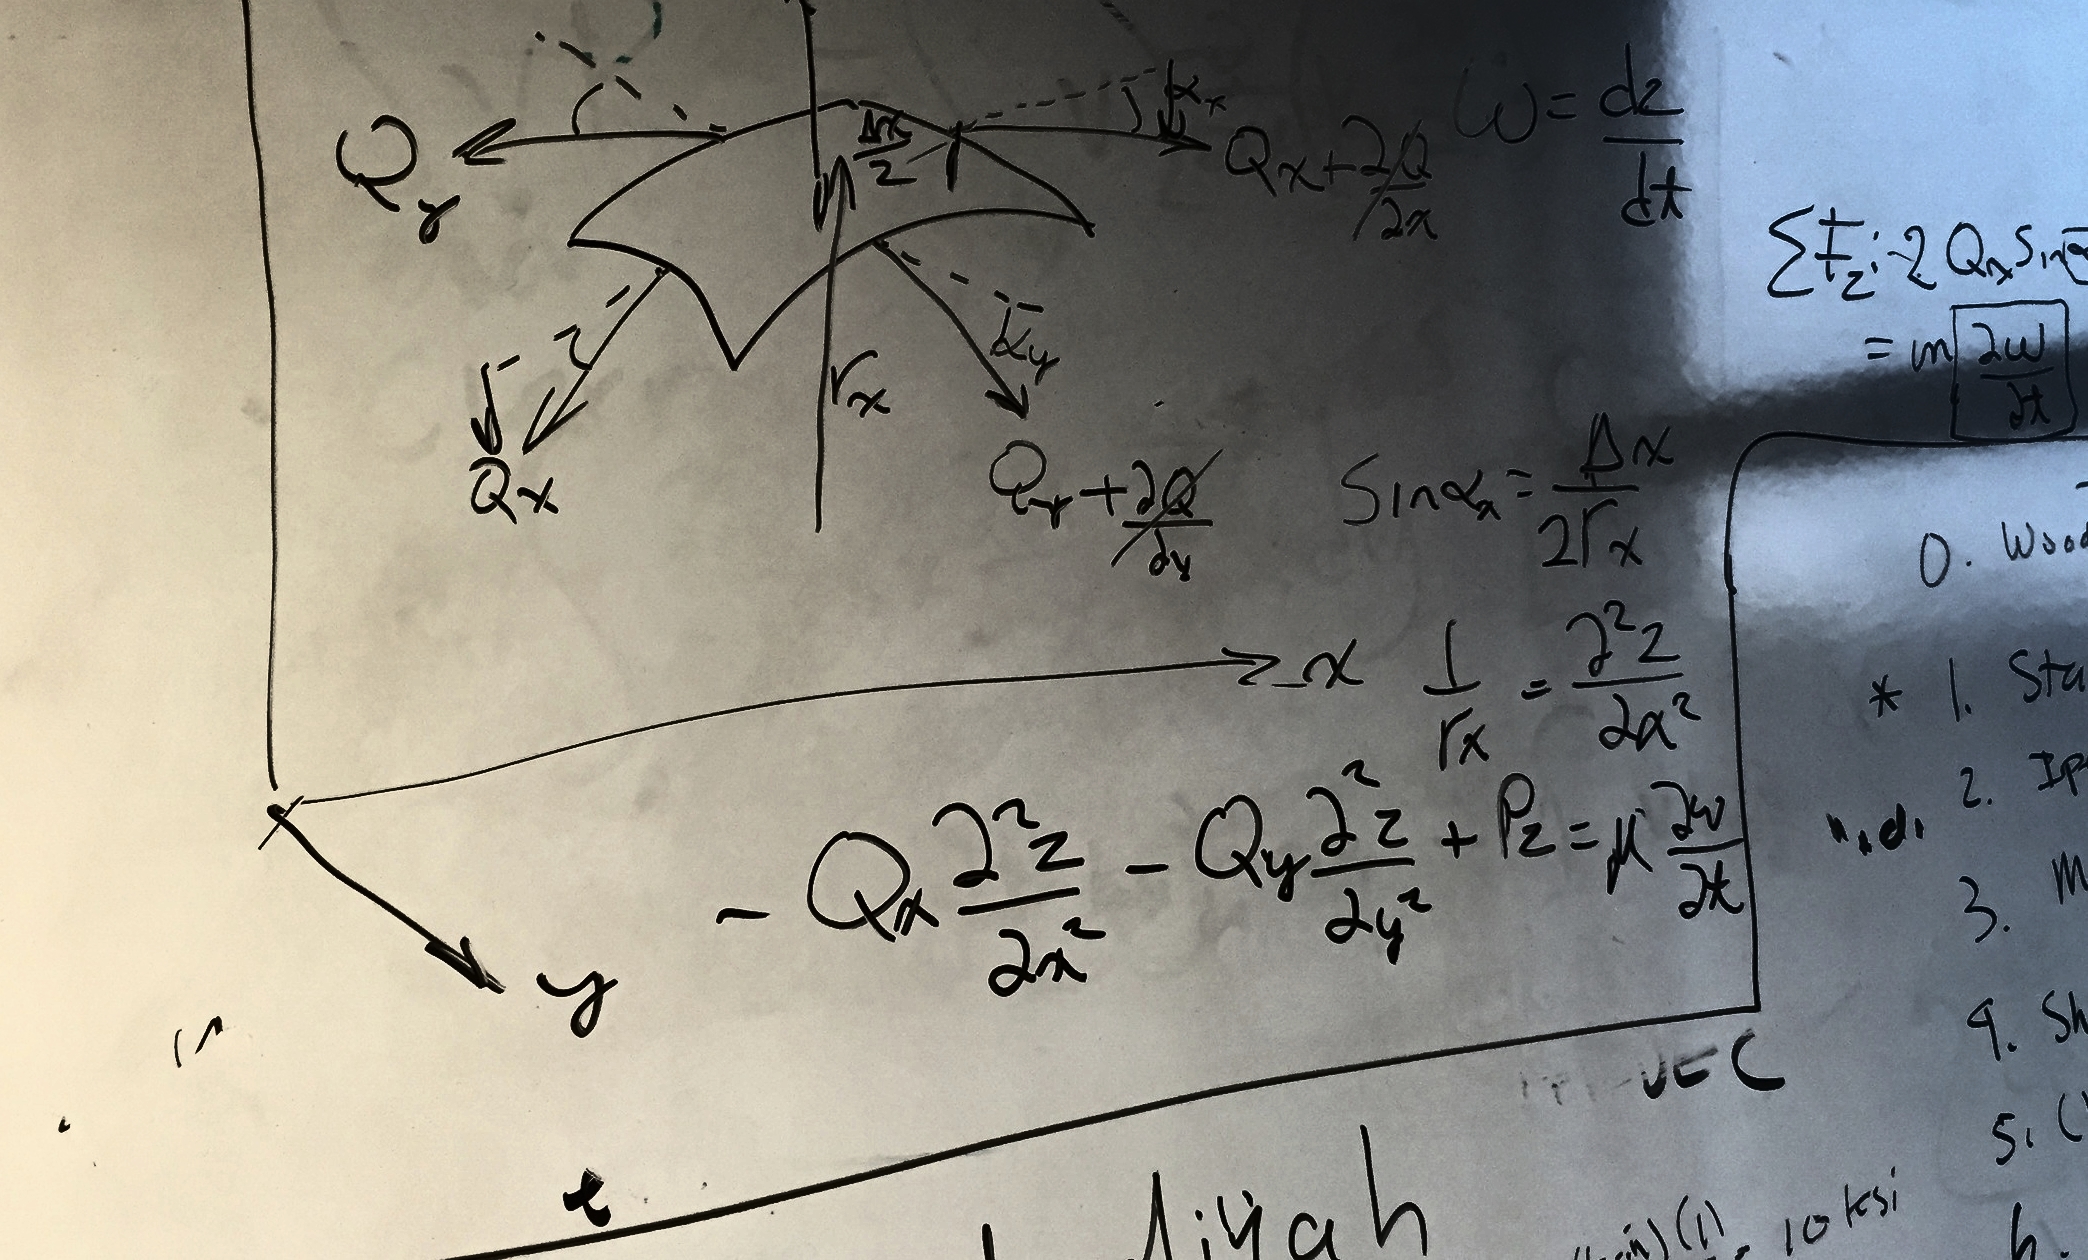 αx
Qy
Δx/2
Qx + ∂Q/∂x
ω = dz/dt
ΣFz: -2 Qx Sin α
= m ∂w/∂t
rx
αy
Qx
Qy + ∂Q/∂y
Sin αx = Δx/2rx
0. Wood
x
1/rx = ∂²z/∂x²
* 1. Sta
2. Ip
- Qx ∂²z/∂x² - Qy ∂²z/∂y² + Pz = μ ∂w/∂t
3. M
y
4. Sh
5. (
t
10 ksi